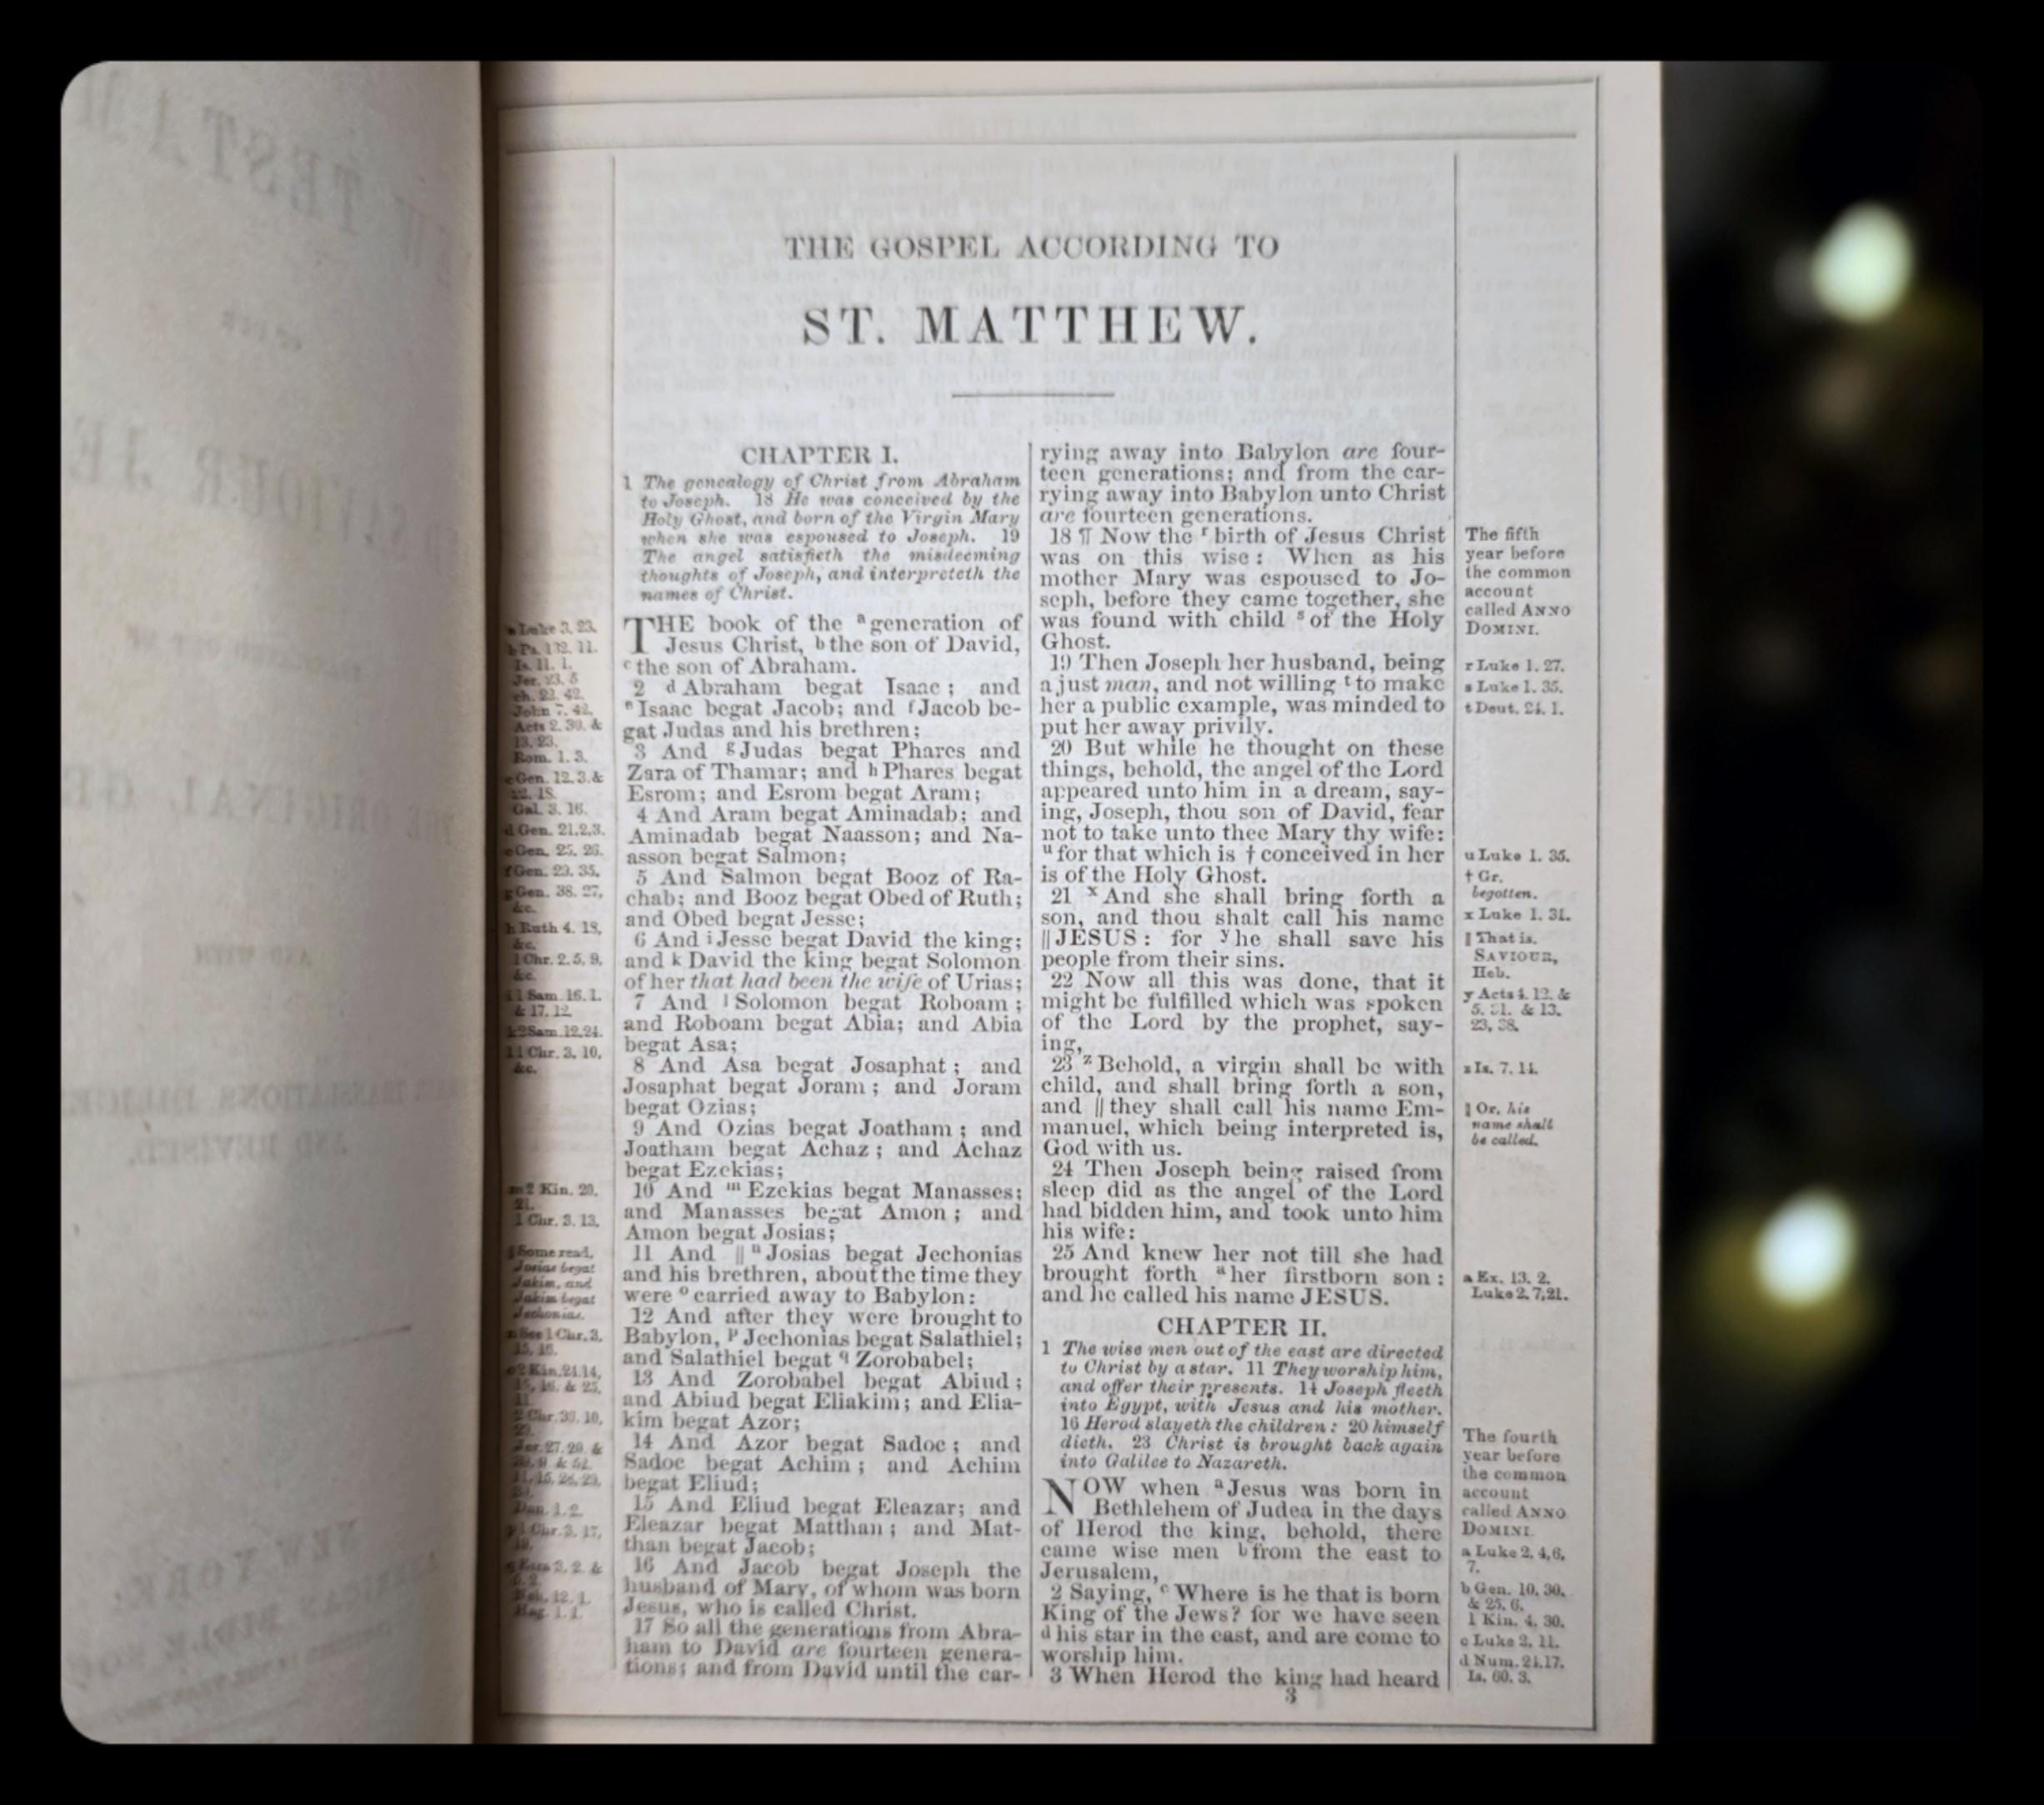 THE GOSPEL ACCORDING TO
ST. MATTHEW.
a Luke 3. 23.
b Ps. 132. 11.
Is. 11. 1.
Jer. 23. 5
ch. 22. 42.
John 7. 42.
Acts 2. 30. &
13. 23.
Rom. 1. 3.
c Gen. 12. 3. &
22. 18.
Gal. 3. 16.
d Gen. 21.2,3.
e Gen. 25. 26.
f Gen. 29. 35.
g Gen. 38. 27,
&c.
h Ruth 4. 18,
&c.
1 Chr. 2. 5, 9,
&c.
i 1 Sam. 16. 1.
& 17. 12.
k 2 Sam. 12.24.
l 1 Chr. 3. 10,
&c.
m 2 Kin. 20.
21.
1 Chr. 3. 13.
‖ Some read,
Josias begat
Jakim, and
Jakim begat
Jechonias.
n See 1 Chr. 3.
15, 16.
o 2 Kin.24.14,
15, 16. & 25.
11.
2 Chr. 36. 10,
20.
Jer. 27. 20. &
Dan. 1. 2.
p 1 Chr. 3. 17,
19.
q Ezra 3. 2. &
5. 2.
Neh. 12. 1.
Hag. 1. 1.
CHAPTER I.
1 The genealogy of Christ from Abraham
to Joseph. 18 He was conceived by the
Holy Ghost, and born of the Virgin Mary
when she was espoused to Joseph. 19
The angel satisfieth the misdeeming
thoughts of Joseph, and interpreteth the
names of Christ.
THE book of the a generation of
Jesus Christ, b the son of David,
c the son of Abraham.
2 d Abraham begat Isaac; and
e Isaac begat Jacob; and f Jacob be-
gat Judas and his brethren;
3 And g Judas begat Phares and
Zara of Thamar; and h Phares begat
Esrom; and Esrom begat Aram;
4 And Aram begat Aminadab; and
Aminadab begat Naasson; and Na-
asson begat Salmon;
5 And Salmon begat Booz of Ra-
chab; and Booz begat Obed of Ruth;
and Obed begat Jesse;
6 And i Jesse begat David the king;
and k David the king begat Solomon
of her that had been the wife of Urias;
7 And l Solomon begat Roboam;
and Roboam begat Abia; and Abia
begat Asa;
8 And Asa begat Josaphat; and
Josaphat begat Joram; and Joram
begat Ozias;
9 And Ozias begat Joatham; and
Joatham begat Achaz; and Achaz
begat Ezekias;
10 And m Ezekias begat Manasses;
and Manasses begat Amon; and
Amon begat Josias;
11 And ‖ n Josias begat Jechonias
and his brethren, about the time they
were o carried away to Babylon:
12 And after they were brought to
Babylon, p Jechonias begat Salathiel;
and Salathiel begat q Zorobabel;
13 And Zorobabel begat Abiud;
and Abiud begat Eliakim; and Elia-
kim begat Azor;
14 And Azor begat Sadoc; and
Sadoc begat Achim; and Achim
begat Eliud;
15 And Eliud begat Eleazar; and
Eleazar begat Matthan; and Mat-
than begat Jacob;
16 And Jacob begat Joseph the
husband of Mary, of whom was born
Jesus, who is called Christ.
17 So all the generations from Abra-
ham to David are fourteen genera-
tions; and from David until the car-
rying away into Babylon are four-
teen generations; and from the car-
rying away into Babylon unto Christ
are fourteen generations.
18 ¶ Now the r birth of Jesus Christ
was on this wise: When as his
mother Mary was espoused to Jo-
seph, before they came together, she
was found with child s of the Holy
Ghost.
19 Then Joseph her husband, being
a just man, and not willing t to make
her a public example, was minded to
put her away privily.
20 But while he thought on these
things, behold, the angel of the Lord
appeared unto him in a dream, say-
ing, Joseph, thou son of David, fear
not to take unto thee Mary thy wife:
u for that which is † conceived in her
is of the Holy Ghost.
21 x And she shall bring forth a
son, and thou shalt call his name
‖ JESUS: for y he shall save his
people from their sins.
22 Now all this was done, that it
might be fulfilled which was spoken
of the Lord by the prophet, say-
ing,
23 z Behold, a virgin shall be with
child, and shall bring forth a son,
and ‖ they shall call his name Em-
manuel, which being interpreted is,
God with us.
24 Then Joseph being raised from
sleep did as the angel of the Lord
had bidden him, and took unto him
his wife:
25 And knew her not till she had
brought forth a her firstborn son:
and he called his name JESUS.
CHAPTER II.
1 The wise men out of the east are directed
to Christ by a star. 11 They worship him,
and offer their presents. 14 Joseph fleeth
into Egypt, with Jesus and his mother.
16 Herod slayeth the children: 20 himself
dieth. 23 Christ is brought back again
into Galilee to Nazareth.
NOW when a Jesus was born in
Bethlehem of Judea in the days
of Herod the king, behold, there
came wise men b from the east to
Jerusalem,
2 Saying, c Where is he that is born
King of the Jews? for we have seen
d his star in the east, and are come to
worship him.
3 When Herod the king had heard
3
The fifth
year before
the common
account
called ANNO
DOMINI.
r Luke 1. 27.
s Luke 1. 35.
t Deut. 24. 1.
u Luke 1. 35.
† Gr.
begotten.
x Luke 1. 31.
‖ That is,
SAVIOUR,
Heb.
y Acts 4. 12. &
5. 31. & 13.
23, 38.
z Is. 7. 14.
‖ Or, his
name shall
be called.
a Ex. 13. 2.
Luke 2. 7,21.
The fourth
year before
the common
account
called ANNO
DOMINI.
a Luke 2. 4,6,
7.
b Gen. 10. 30.
& 25. 6.
1 Kin. 4. 30.
c Luke 2. 11.
d Num. 24.17.
Is. 60. 3.